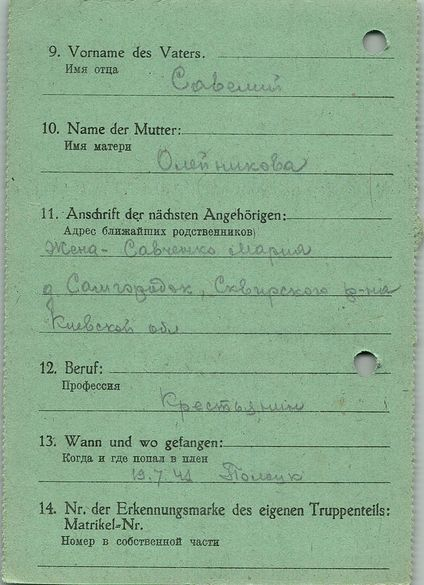 9. Vorname des Vaters.
Имя отца
Савелий
10. Name der Mutter:
Имя матери
Олейникова
11. Anschrift der nächsten Angehörigen:
Адрес ближайших родственников)
Жена - Савченко Мария
д Самгородок, Сквирского р-на
Киевской обл
12. Beruf:
Профессия
Крестьянин
13. Wann und wo gefangen:
Когда и где попал в плен
19.7.41 Полоцк
14. Nr. der Erkennungsmarke des eigenen Truppenteils:
Matrikel-Nr.
Номер в собственной части